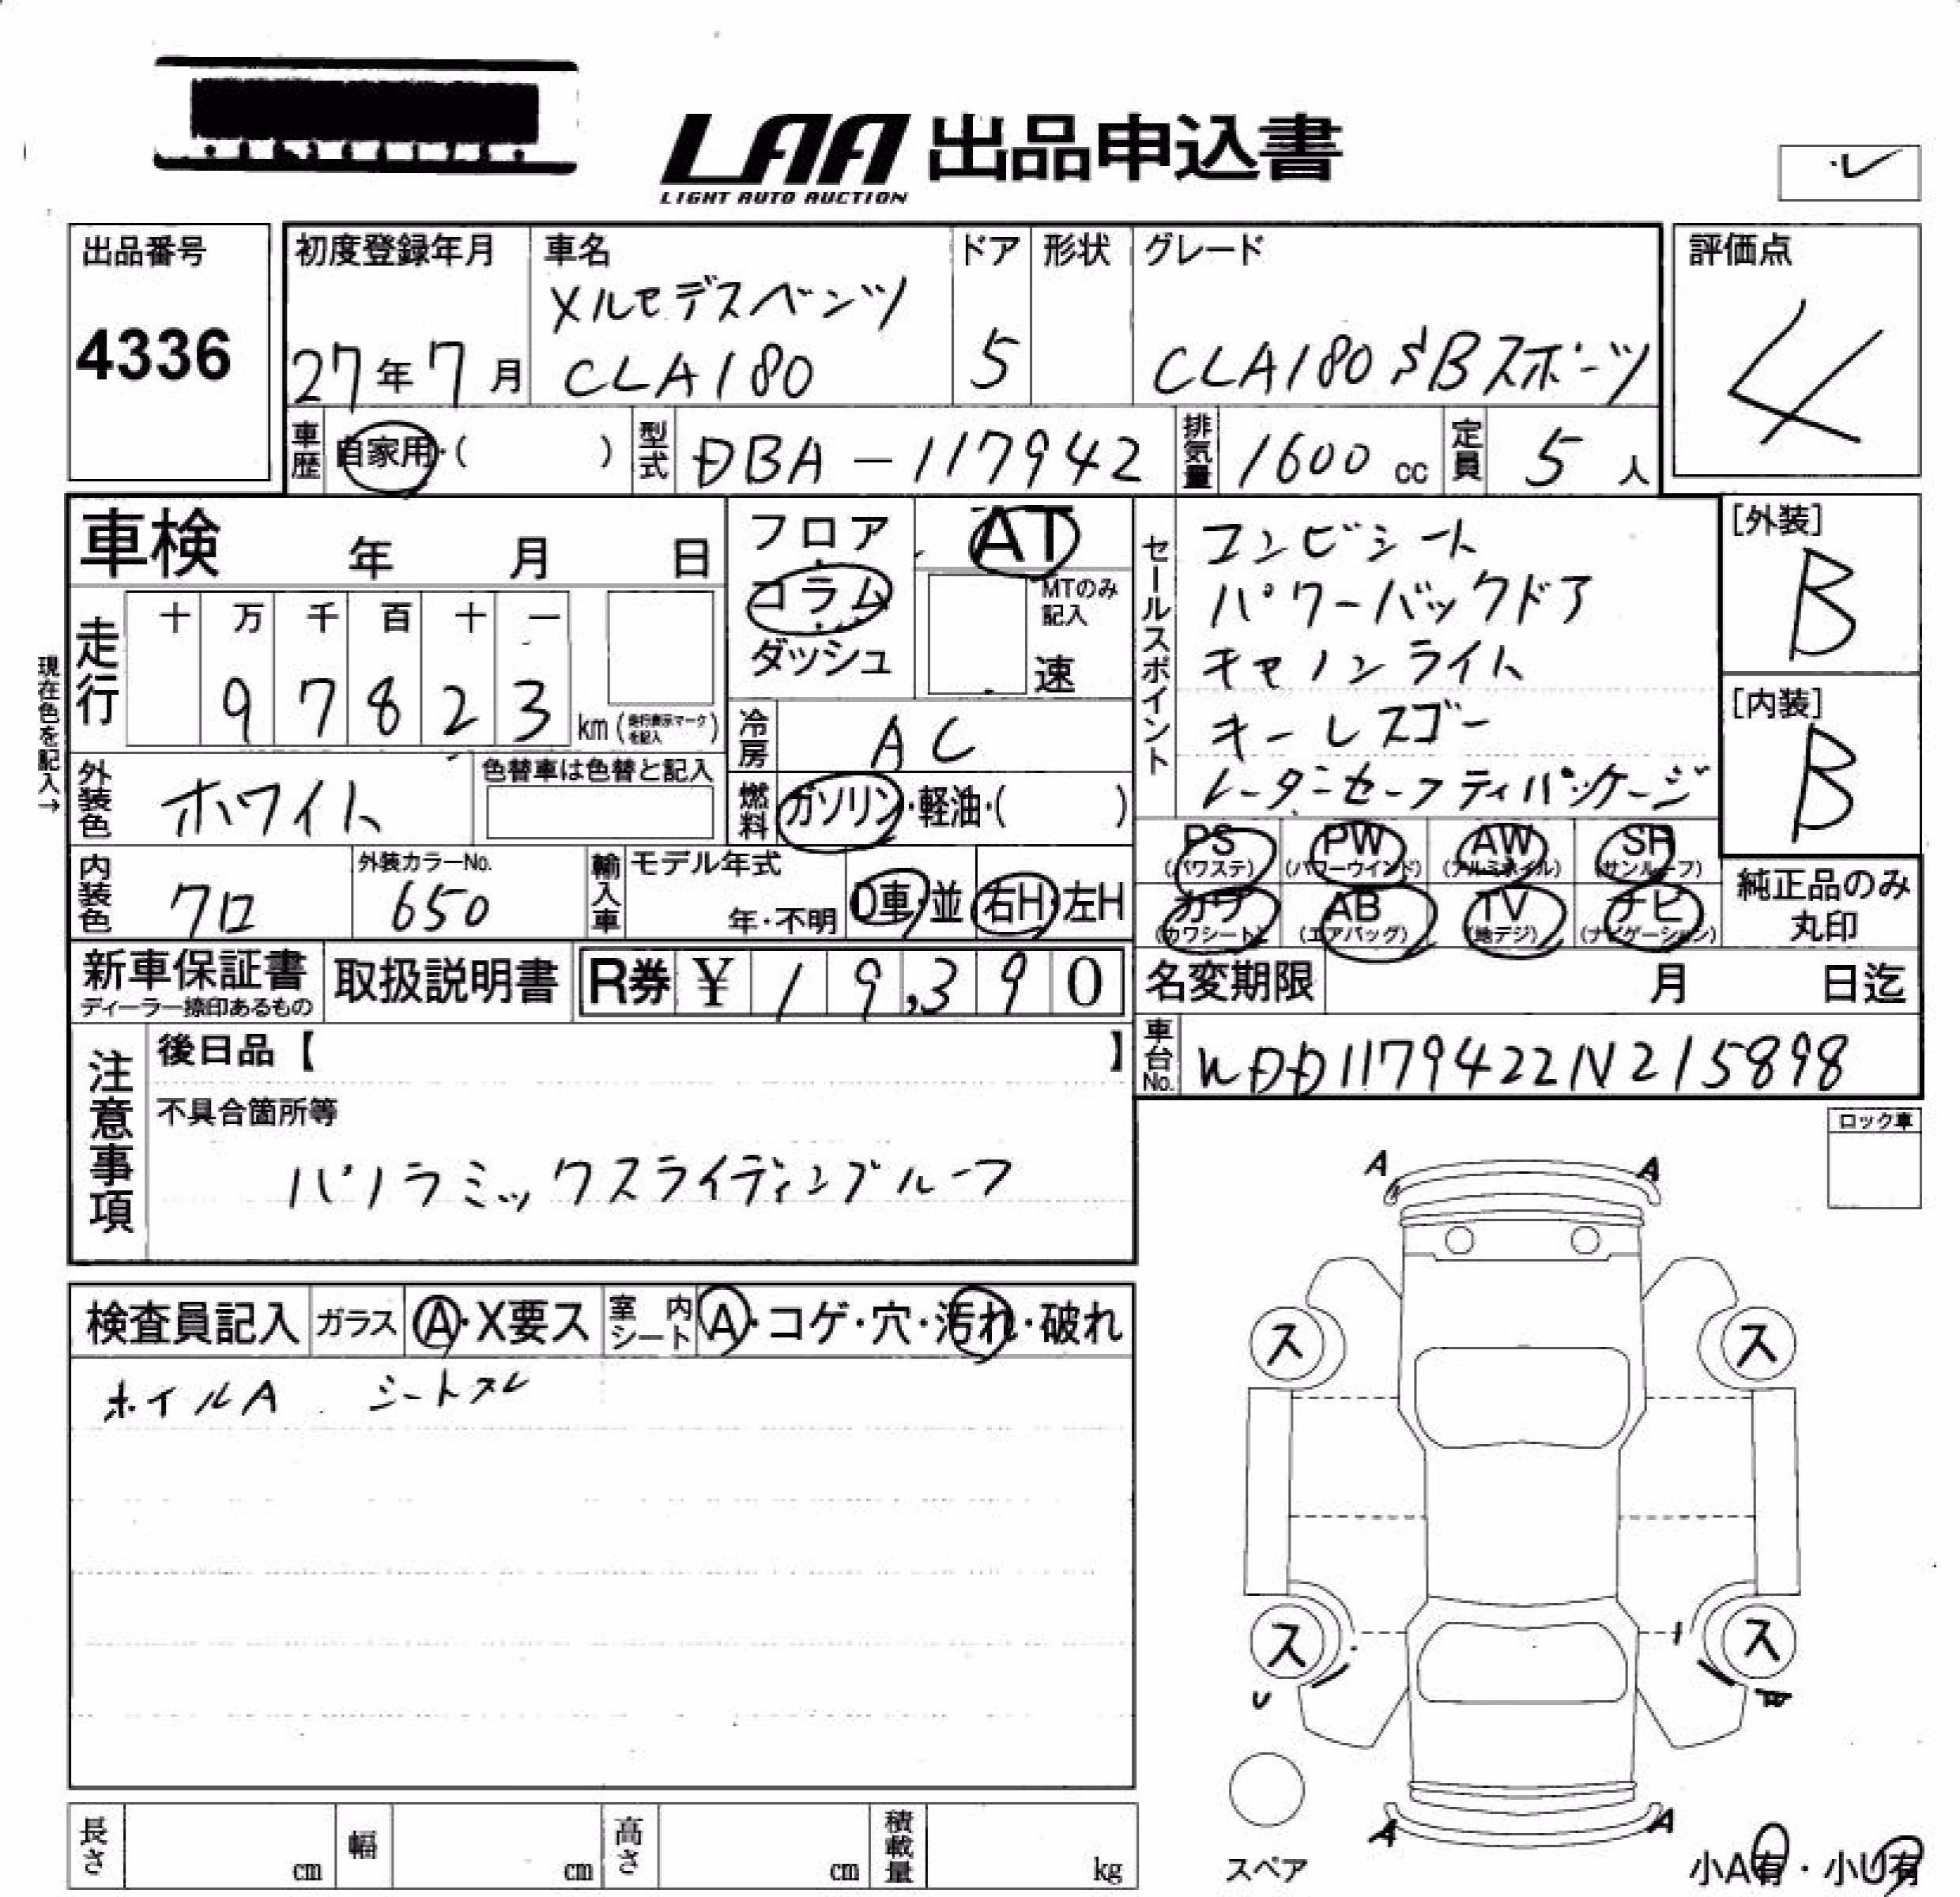 LAA 出品申込書
LIGHT AUTO AUCTION
出品番号
4336
初度登録年月
27年7月
車名
メルセデスベンツ
CLA180
ドア
5
形状
グレード
CLA180 SBスポーツ
評価点
4
車歴 自家用・( )
型式 DBA-117942
排気量 1600 cc
定員 5 人
車検 年 月 日
フロア
コラム
ダッシュ
AT
MTのみ
記入
速
セールスポイント
コンビシート
パワーバックドア
キセノンライト
キーレスゴー
レーダーセーフティパッケージ
[外装]
B
[内装]
B
現在色を記入→
走行
十 万 千 百 十 一
9 7 8 2 3 km (走行表示マークを記入)
冷房 AC
外装色 ホワイト
色替車は色替と記入
燃料 ガソリン・軽油・( )
PS (パワステ) PW (パワーウインド) AW (アルミホイル) SR (サンルーフ)
カワ (カワシート) AB (エアバッグ) TV (地デジ) ナビ (ナビゲーション)
純正品のみ
丸印
内装色 クロ
外装カラーNo.
650
輸入車 モデル年式
年・不明
D車・並 右H・左H
新車保証書
ディーラー捺印あるもの
取扱説明書
R券 ¥ 19,390
名変期限 月 日迄
車台No. WDD1179422N215898
注意事項
後日品【 】
不具合箇所等
パノラミックスライディングルーフ
ロック車
検査員記入 ガラス A・X要ス 室内シート A・コゲ・穴・汚れ・破れ
ホイルA シートスレ
A A
ス ス
ス ス
U
A A
スペア
小A有・小U有
長さ cm 幅 cm 高さ cm 積載量 kg